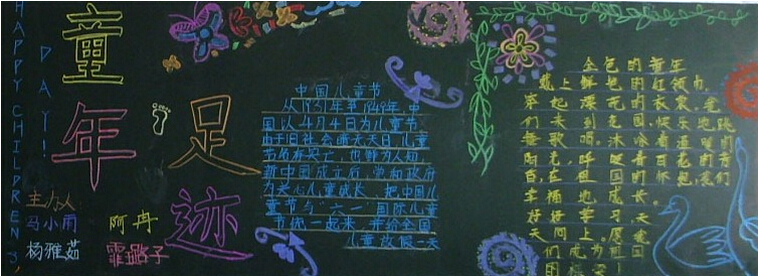 HAPPY CHILDREN'S
DAY!
童年
足迹
主办人
马小雨
杨雅茹
阿冉
霏路子
中国儿童节
从1931年节1949年,中
国以4月4日为儿童节,
由于旧社会暗无天日,儿童
节名存实亡,也鲜为人知
新中国成立后,党和政府
为关心儿童成长,把中国儿
童节与“六一”国际儿童
节统一起来,并给全国
儿童放假一天
金色的童年
戴上鲜艳的红领巾,
穿起漂亮的衣裳,
们来到花园,快乐地跳
舞歌唱。沐浴着温暖的
阳光,呼吸着百花的
在祖国的怀抱,我们
幸福地成长。
好好学习,天
天向上。
们成为祖国
的栋